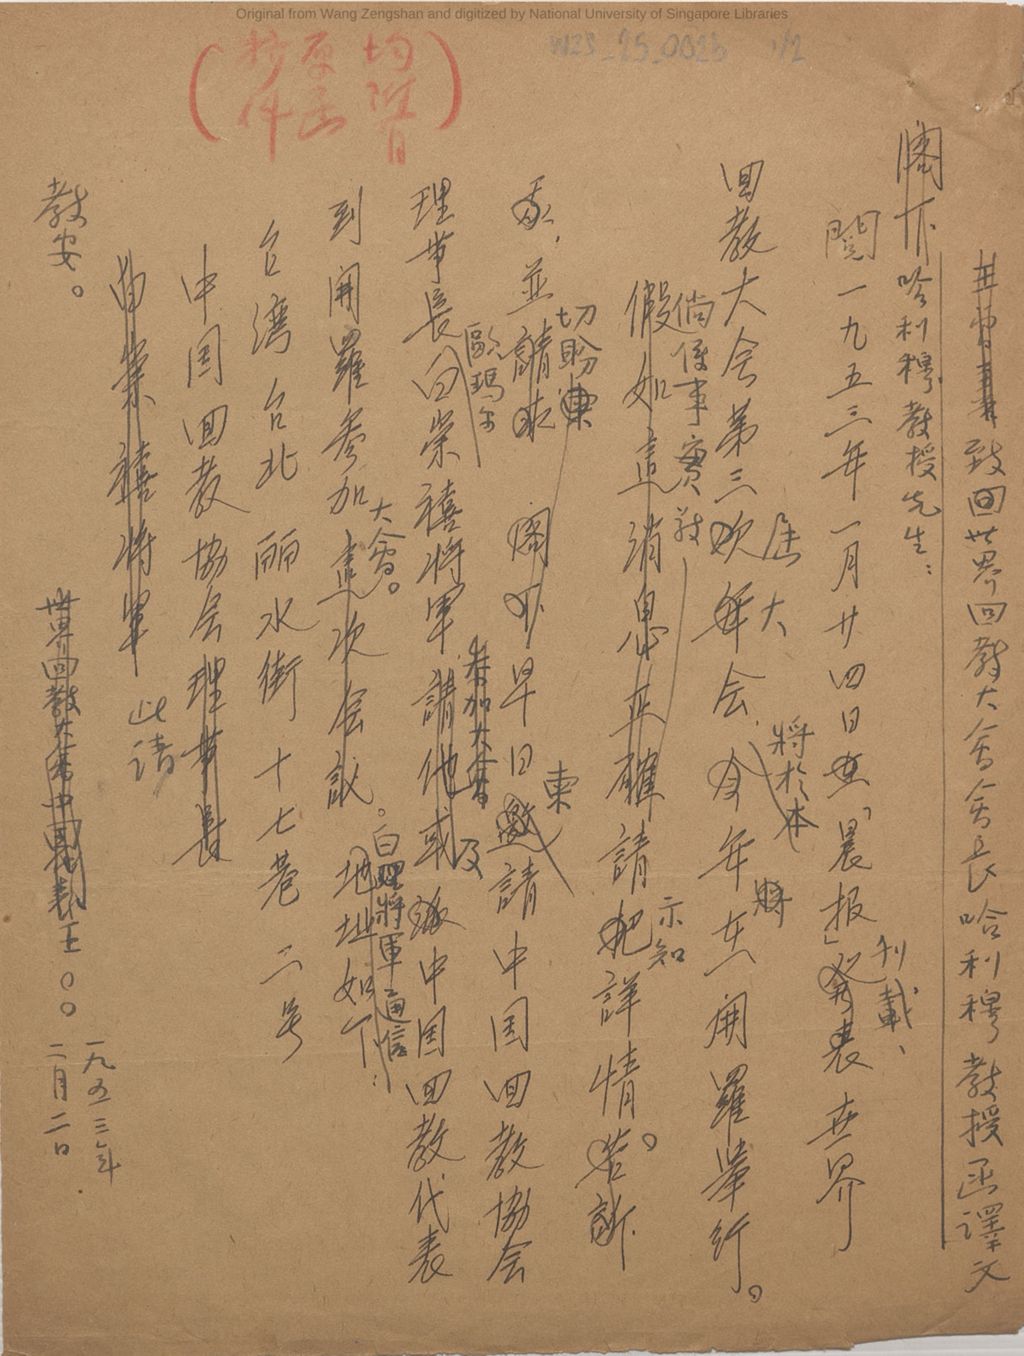 Original from Wang Zengshan and digitized by National University of Singapore Libraries
WZS_25_0023 1/2
均諧
原函
抄件
致回世界回教大會會長哈利穆教授函譯文
閣下哈利穆教授先生：
閱一九五三年一月廿四日「晨报」發表世界
刊載、
回教大会第三次年会，今年在開羅举行。
屆大
將於本
將
倘係事實
假如這消息正確請把詳情告訴
示知
我，並請求閣下早日邀請中国回教協会
切盼
東
理事長白崇禧將軍請他或派中国回教代表
歐瑪尔
参加大會
及
到開羅参加這次会議。地址如下：
大會。
白將軍通信
台湾台北丽水街十七巷二号
中国回教協会理事長
白崇禧將軍
此请
教安。
世界回教大會中國代表王〇〇
一九五三年
二月二日